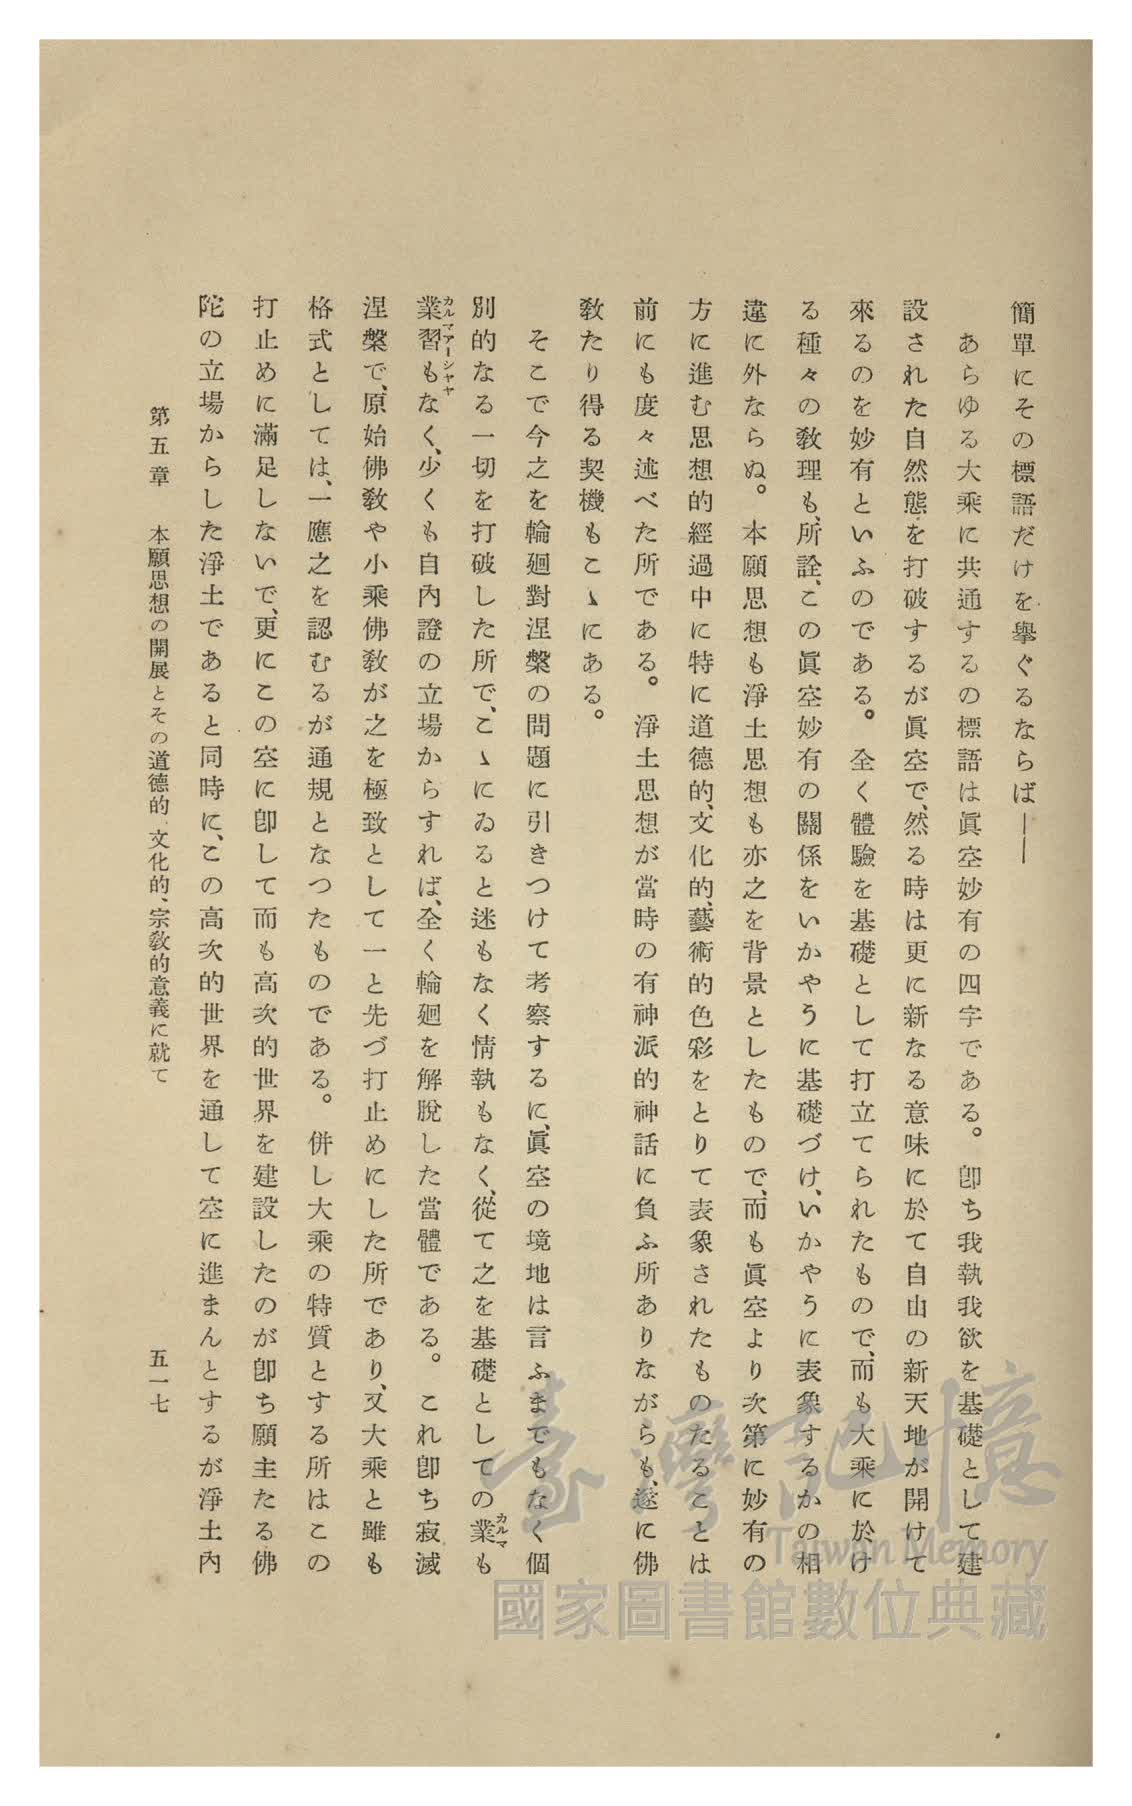 簡單にその標語だけを擧ぐるならば――
あらゆる大乘に共通するの標語は眞空妙有の四字である。卽ち我執我欲を基礎として建
設された自然態を打破するが眞空で、然る時は更に新なる意味に於て自由の新天地が開けて
來るのを妙有といふのである。全く體驗を基礎として打立てられたもので、而も大乘に於け
る種々の敎理も、所詮、この眞空妙有の關係をいかやうに基礎づけ、いかやうに表象するかの相
違に外ならぬ。本願思想も淨土思想も亦之を背景としたもので、而も眞空より次第に妙有の
方に進む思想的經過中に特に道德的、文化的、藝術的色彩をとりて表象されたものたることは
前にも度々述べた所である。淨土思想が當時の有神派的神話に負ふ所ありながらも、遂に佛
敎たり得る契機もこゝにある。
そこで今之を輪廻對涅槃の問題に引きつけて考察するに、眞空の境地は言ふまでもなく個
別的なる一切を打破した所で、こゝにゐると迷もなく情執もなく、從て之を基礎としての業カルマも
業習カルマアーシャヤもなく、少くも自內證の立場からすれば、全く輪廻を解脫した當體である。これ卽ち寂滅
涅槃で、原始佛敎や小乘佛敎が之を極致として一と先づ打止めにした所であり、又大乘と雖も
格式としては、一應之を認むるが通規となつたものである。併し大乘の特質とする所はこの
打止めに滿足しないで、更にこの空に卽して而も高次的世界を建設したのが卽ち願主たる佛
陀の立場からした淨土であると同時に、この高次的世界を通して空に進まんとするが淨土內
第五章 本願思想の開展とその道德的、文化的、宗敎的意義に就て 五一七
臺灣記憶
Taiwan Memory
國家圖書館數位典藏